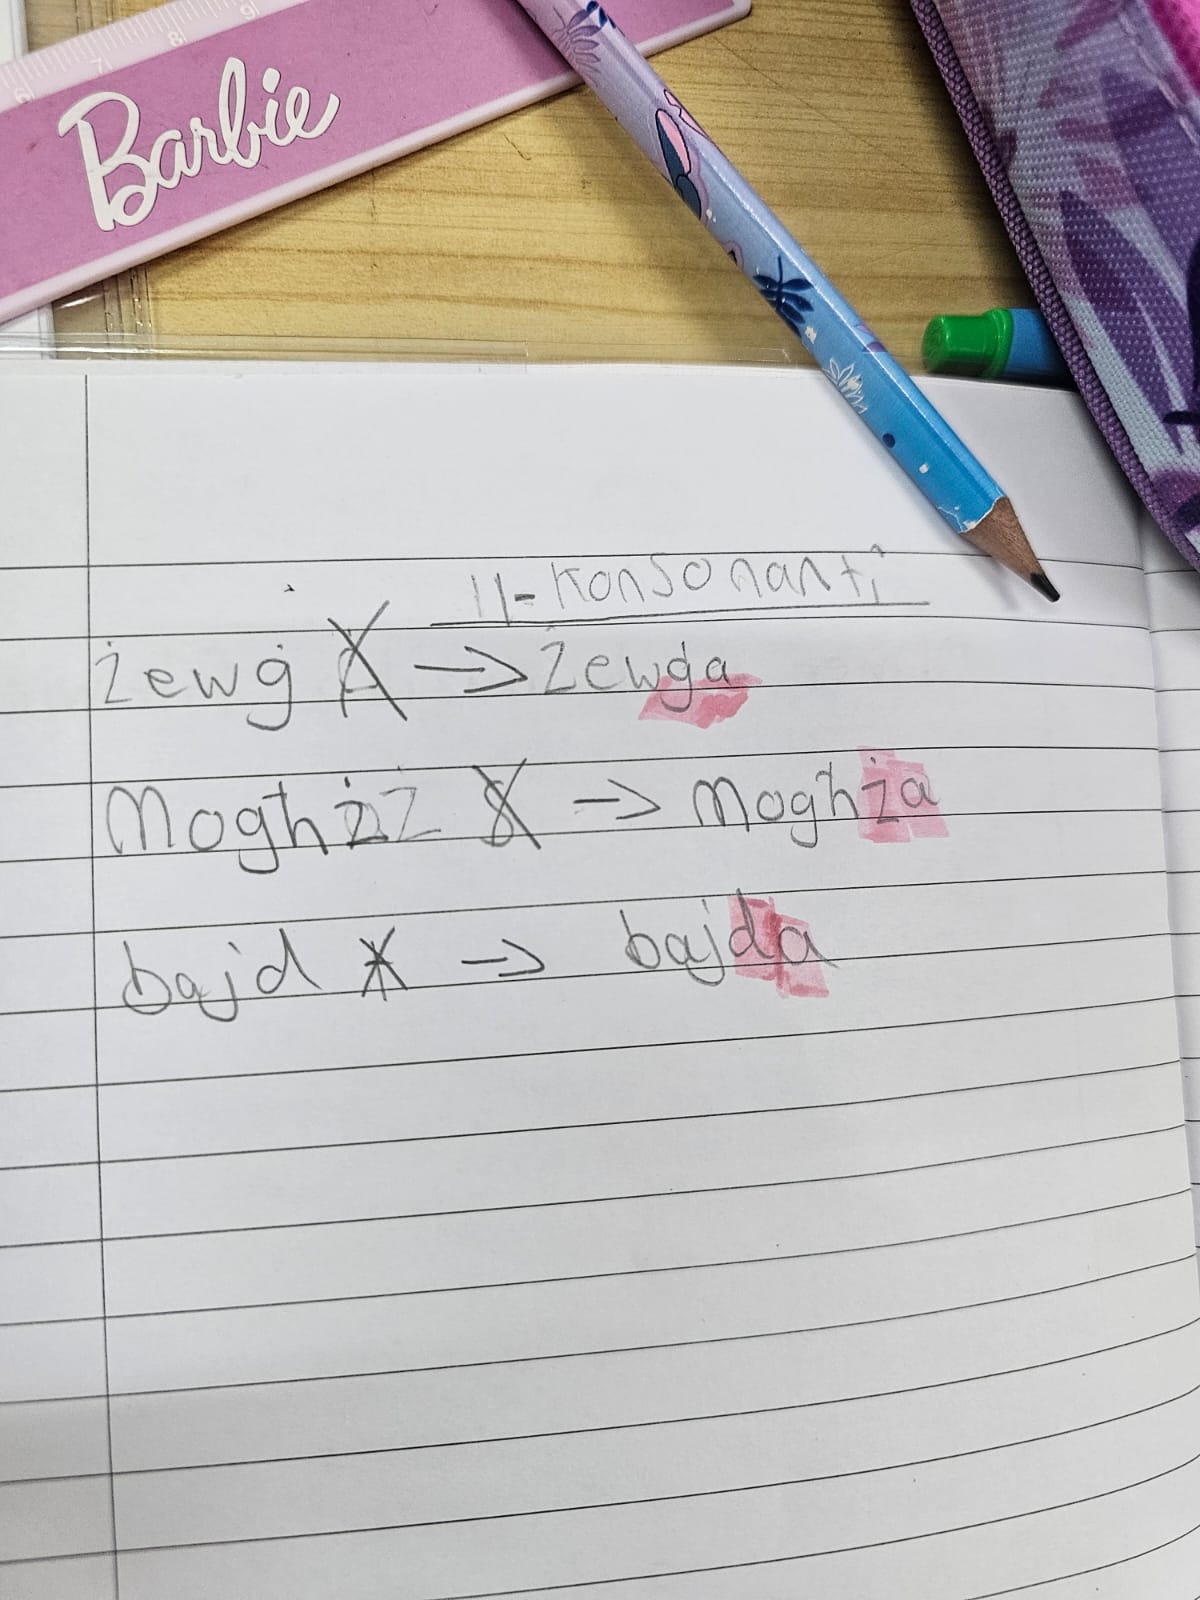 6 7 8 9
Barbie
Il-Konsonanti
żewġ → żewġa
Mogħż → mogħża
bajd → bajda